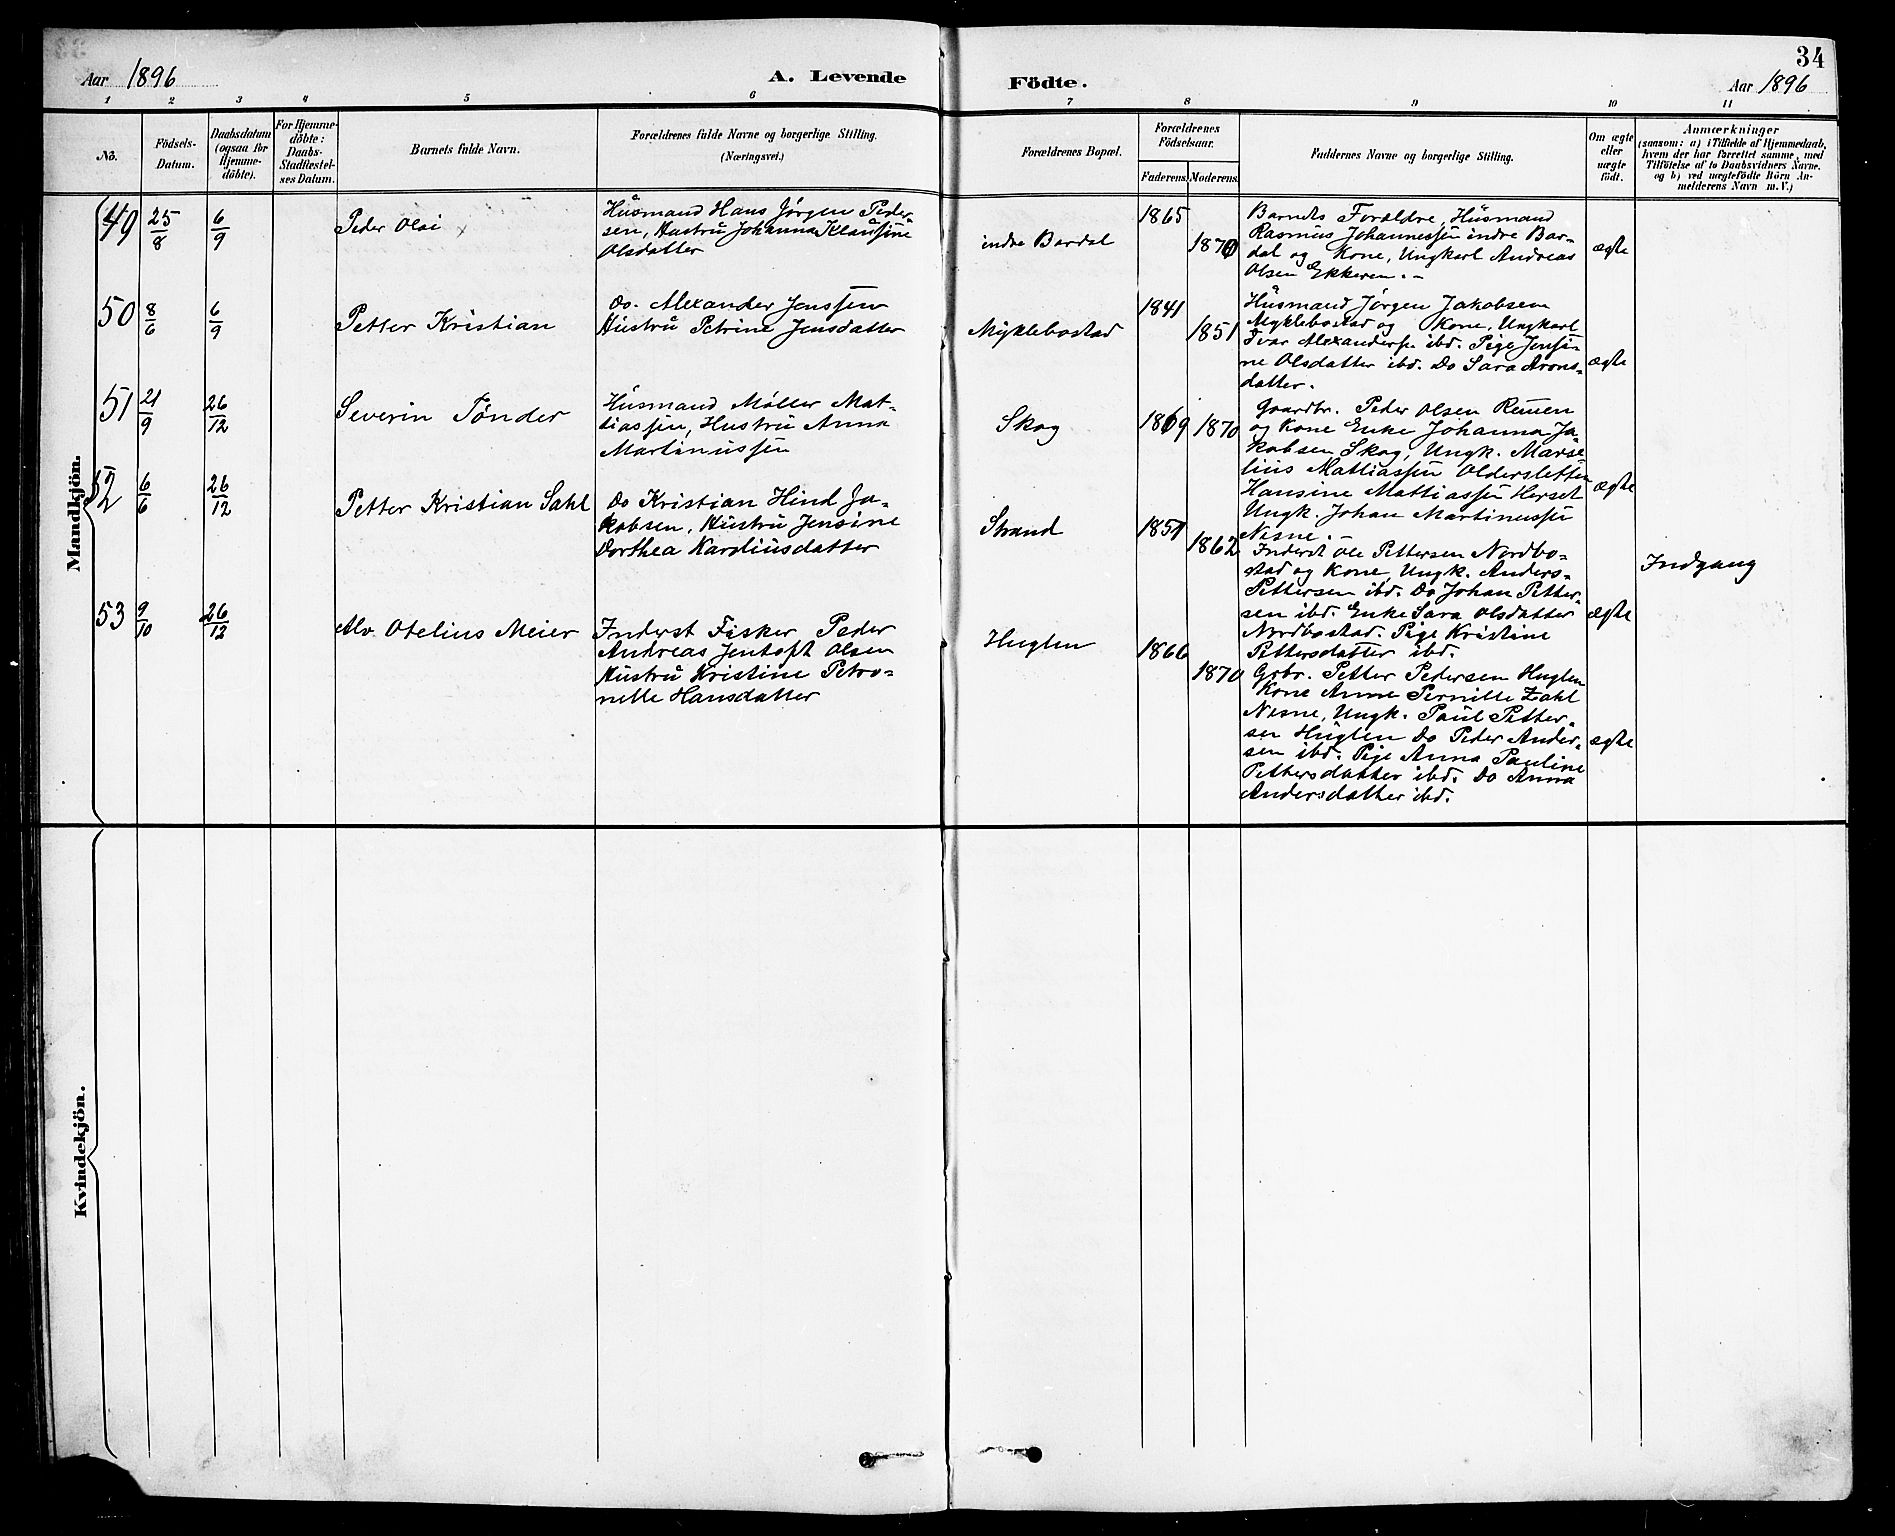 34
Aar 1896
A. Levende
Födte.
Aar 1896
1 2 3 4 5 6 7 8 9 10 11
No.
Födsels-
Datum.
Daabsdatum
(ogsaa for
Hjemme-
döbte).
For Hjemme-
döbte:
Daabs-
Stadfæstel-
ses Datum.
Barnets fulde Navn.
Forældrenes fulde Navne og borgerlige Stilling.
(Næringsvei.)
Forældrenes Bopæl.
Forældrenes
Födselsaar.
Faderens.
Moderens.
Faddernes Navne og borgerlige Stilling.
Om ægte
eller
uægte
födt.
Anmærkninger
(saasom: a) i Tilfælde af Hjemmedaab,
hvem der har forrettet samme, med
Tilföielse af to Daabsvidners Navne.
og b) ved uægtefödte Börn An-
melderens Navn m. V.)
Mandkjön.
49
25/8
6/9
Peder Olai
Husmand Hans Jørgen Peder-
sen, Hustru Johanna Klausine
Olsdatter
indre Bardal
1865
1870
Barnets Forældre, Husmand
Rasmus Johannessen indre Bar-
dal og Kone, Ungkarl Andreas
Olsen Ekkeren.-
ægte
50
8/6
6/9
Petter Kristian
Do. Alexander Jenssen
Hustru Petrine Jensdatter
Myklebostad
1841
1851
Husmand Jørgen Jakobsen
Myklebostad og Kone, Ungkarl
Ivar Alexanders. ibd. Pige Jensi-
ne Olsdatter ibd. Do Sara Arons-
datter.
ægte
51
21/9
26/12
Severin Tønder
Husmand Møller Mat-
tiassen, Hustru Anna
Martinussen
Skog
1869
1870
Gaardbr. Peder Olsen Remen
og Kone Enke Johanna Ja-
kobsen Skog, Ungk. Marse-
lius Mattiassen Oldersletten
Hansine Mattiassen Herset
Ungk. Johan Martinussen
Nesne.-
ægte
52
6/6
26/12
Petter Kristian Sahl
Do Kristian Hind Ja-
kobsen, Hustru Jensine
Dorthea Karoliusdatter
Strand
1851
1862
Inderst Ole Pettersen Nordbo-
stad og Kone, Ungk. Anders
Pettersen ibd. Do Johan Petter-
sen ibd. Enke Sara Olsdatter
Nordbostad. Pige Kristine
Pettersdatter ibd.
ægte
Indgang
53
9/10
26/12
Alv. Otelius Meier
Inderst Fisker Peder
Andreas Jentoft Olsen
Hustru Kristine Petro-
nelle Hansdatter
Huglen
1866
1870
Grbr. Petter Pedersen Huglen
Kone Anne Pernille Zahl
Nesne, Ungk. Paul Petter-
sen Huglen Do Peder Ander-
sen ibd. Pige Anna Pauline
Pettersdatter ibd. Do Anna
Andersdatter ibd.
ægte
Kvindekjön.